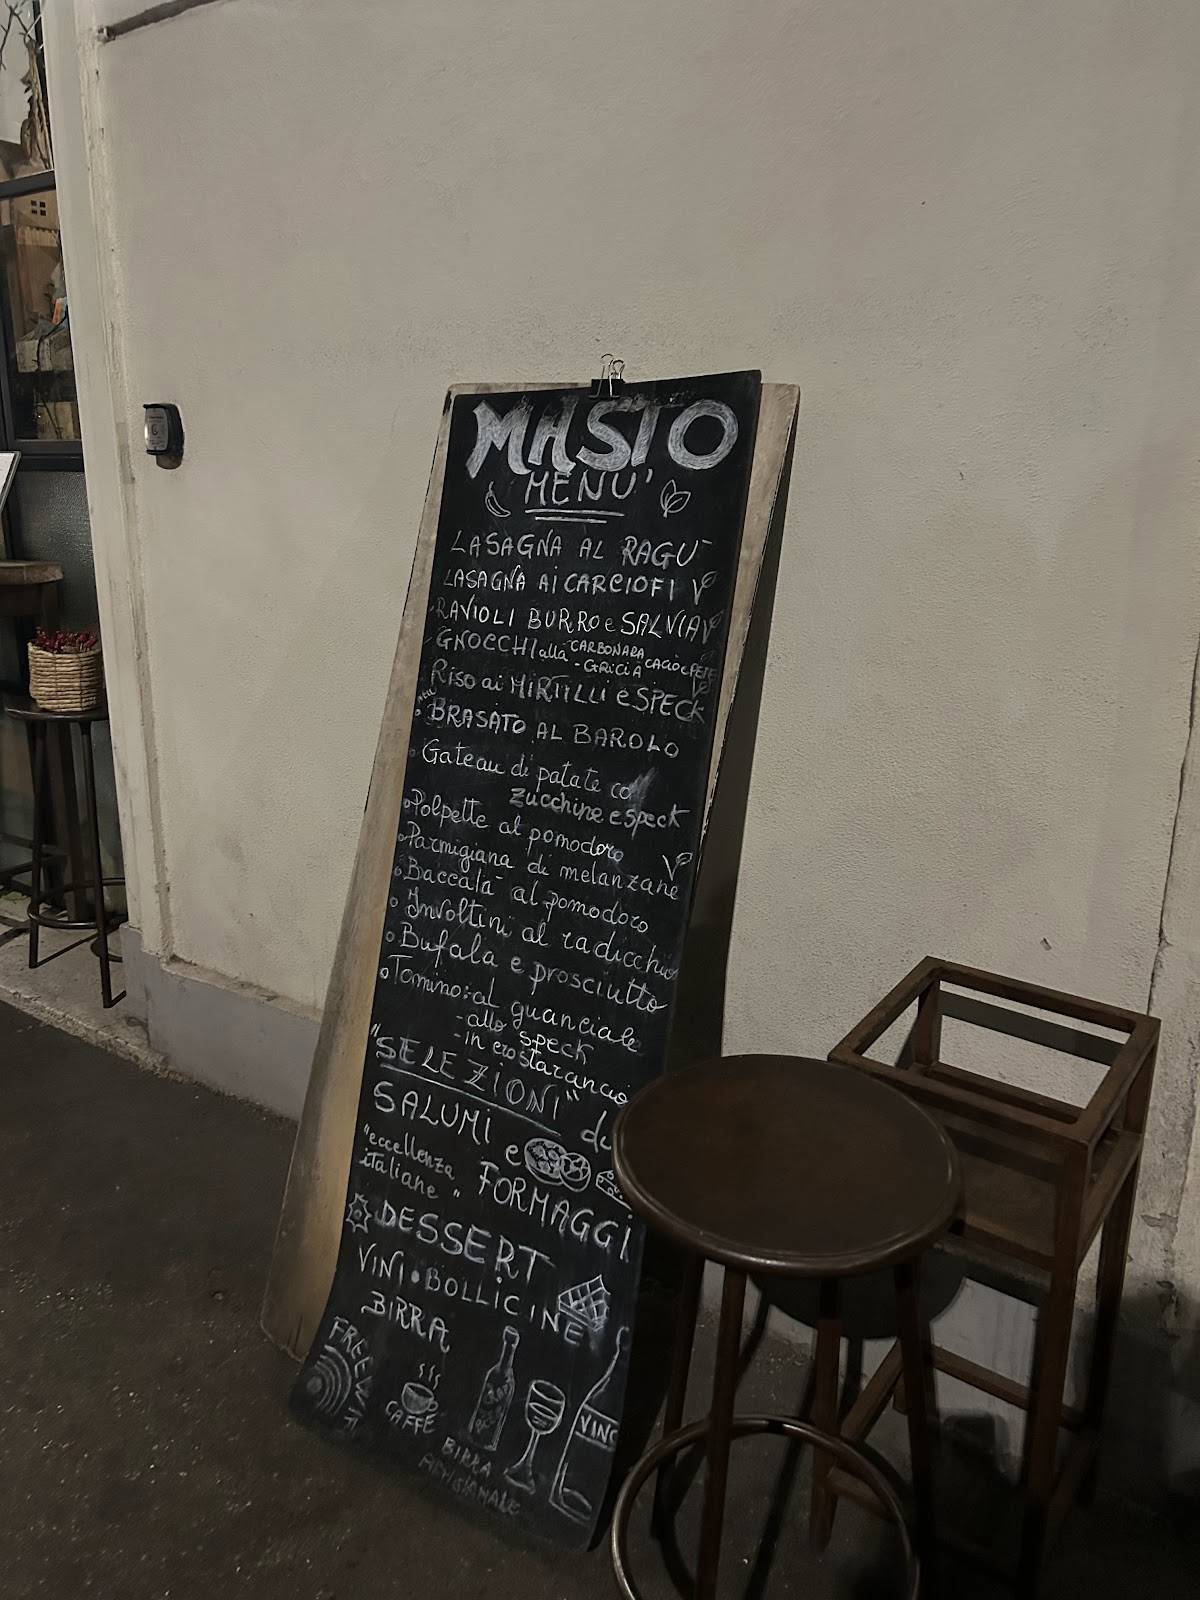 MASTO
MENU'
LASAGNA AL RAGU'
LASAGNA AI CARCIOFI
RAVIOLI BURRO e SALVIA
GNOCCHI alla CARBONARA
- GRICIA CACIO e PEPE
RISO ai MIRTILLI e SPECK
BRASATO AL BAROLO
Gateau di patate co
zucchine e speck
Polpette al pomodoro
Parmigiana di melanzane
Baccalà al pomodoro
Involtini al radicchio
Bufala e prosciutto
Tomino: al guanciale
- allo speck
- in crosta
"SELEZIONI" di
SALUMI e
"eccellenza
italiane"
FORMAGGI
DESSERT
VINI • BOLLICINE
BIRRA
FREE WIFI
CAFFE
BIRRA
ARTIGIANALE
VINO